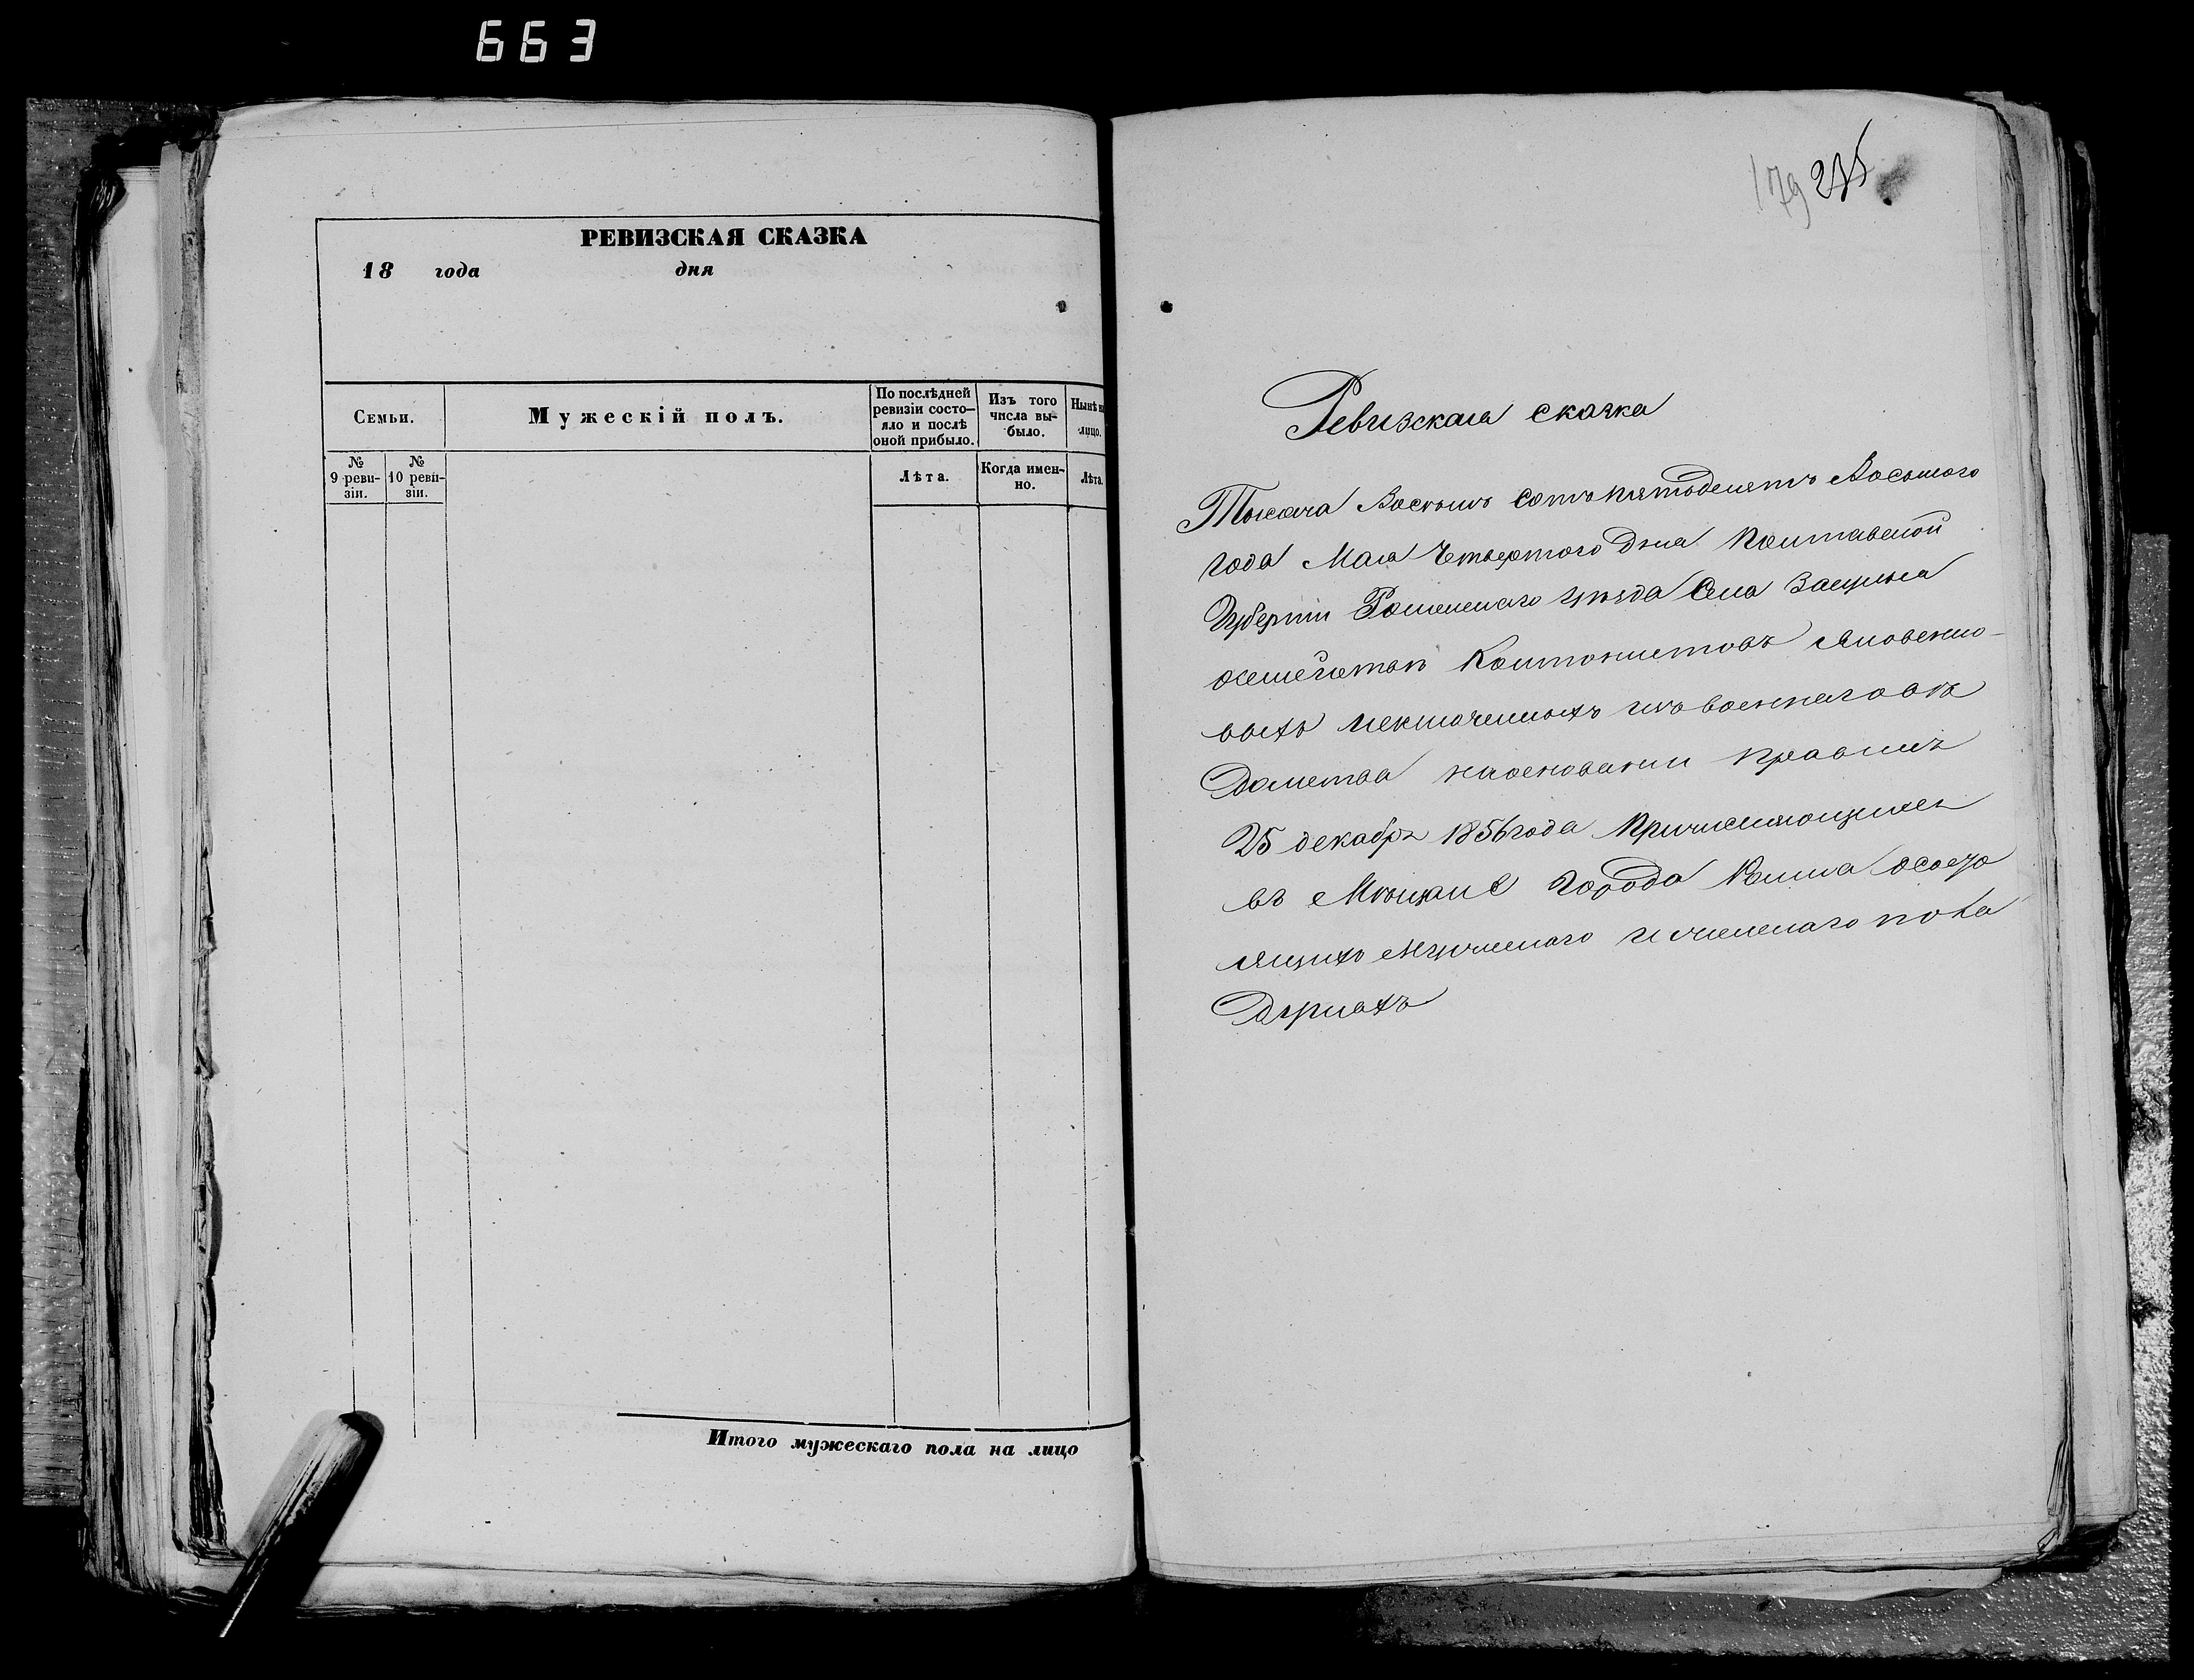 663
РЕВИЗСКАЯ СКАЗКА
18 года дня
Семьи.
Мужескій полъ.
По послѣдней
ревизіи состо—
яло и послѣ
оной прибыло.
Изъ того
числа вы-
было.
Нынѣ
лицо.
№
9 реви-
зіи.
№
10 реви-
зіи.
Лѣта.
Когда имен-
но.
Лѣта.
Итого мужескаго пола на лицо
179 235
Ревизская сказка
Тысяча Восѣмъ сотъ пятьдесятъ Восьмого
года Мая Четвертого Дня Полтавской
Губерніи Роменскаго уѣзда Села
Кантонистовъ
выхъ изключенныхъ изъ военнаго вѣ
Домства на основаніи правилъ
25 декабря 1856 года причисляющихся
въ Мѣщане Города Ромна о состо
ящихъ Мужескаго и женскаго пола
Душахъ